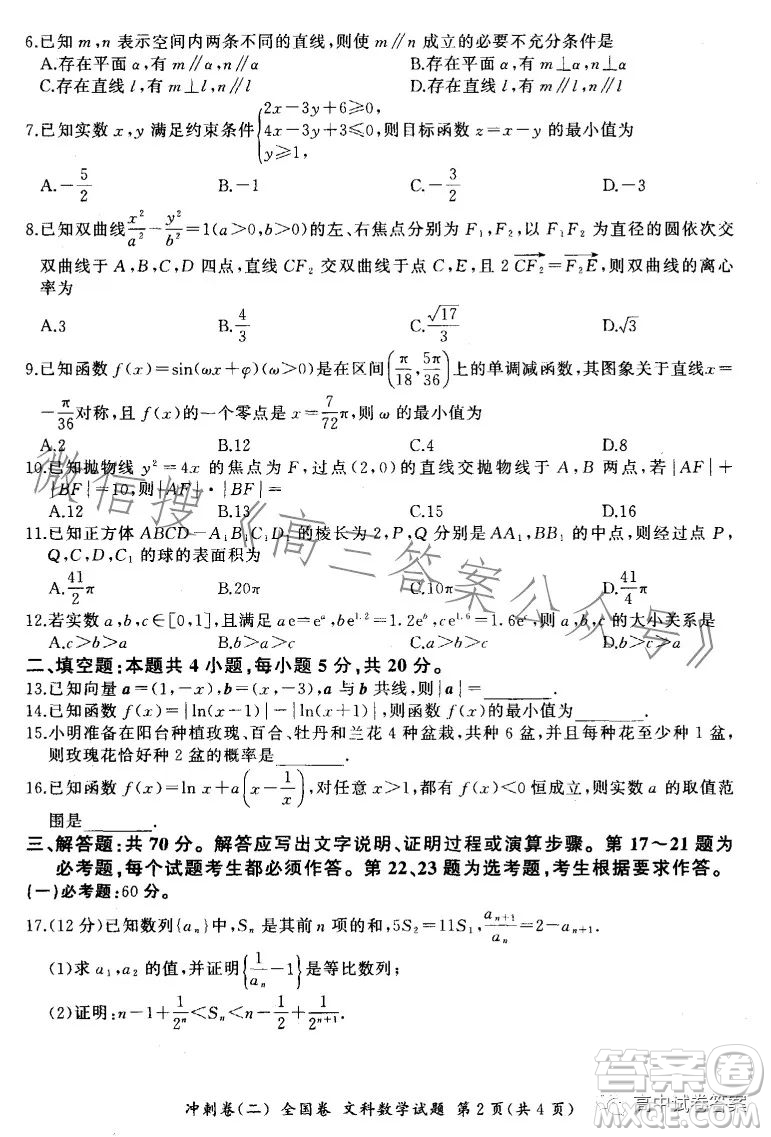 6.已知 m,n 表示空间内两条不同的直线,则使 m∥n 成立的必要不充分条件是
A.存在平面 α,有 m∥α,n∥α
B.存在平面 α,有 m⊥α,n⊥α
C.存在直线 l,有 m⊥l,n⊥l
D.存在直线 l,有 m∥l,n∥l
7.已知实数 x,y 满足约束条件{2x-3y+6≥0, 4x-3y+3≤0, y≥1, 则目标函数 z=x-y 的最小值为
A.-5/2 B.-1 C.-3/2 D.-3
8.已知双曲线x²/a²-y²/b²=1(a>0,b>0)的左、右焦点分别为 F₁,F₂,以 F₁F₂ 为直径的圆依次交
双曲线于 A,B,C,D 四点,直线 CF₂ 交双曲线于点 C,E,且 2 CF₂→=F₂E→,则双曲线的离心
率为
A.3 B.4/3 C.√17/3 D.√3
9.已知函数 f(x)=sin(ωx+φ)(ω>0)是在区间(π/18,5π/36)上的单调减函数,其图象关于直线 x=
-π/36对称,且 f(x)的一个零点是 x=7/72π,则 ω 的最小值为
A.2 B.12 C.4 D.8
10.已知抛物线 y²=4x 的焦点为 F,过点(2,0)的直线交抛物线于 A,B 两点,若|AF|+
|BF|=10,则|AF|·|BF|=
A.12 B.13 C.15 D.16
11.已知正方体 ABCD-A₁B₁C₁D₁ 的棱长为 2,P,Q 分别是 AA₁,BB₁ 的中点,则经过点 P,
Q,C,D,C₁ 的球的表面积为
A.41/2π B.20π C.10π D.41/4π
12.若实数 a,b,c∈[0,1],且满足 ae=eᵃ,be^1.2=1.2eᵇ,ce^1.6=1.6eᶜ,则 a,b,c 的大小关系是
A.c>b>a B.b>a>c C.a>b>c D.b>c>a
二、填空题:本题共 4 小题,每小题 5 分,共 20 分。
13.已知向量 a=(1,-x),b=(x,-3),a 与 b 共线,则|a|=______.
14.已知函数 f(x)=|ln(x-1)|-|ln(x+1)|,则函数 f(x)的最小值为______.
15.小明准备在阳台种植玫瑰、百合、牡丹和兰花 4 种盆栽,共种 6 盆,并且每花至少种 1 盆,
则玫瑰花恰好种 2 盆的概率是______.
16.已知函数 f(x)=ln x+a(x-1/x),对任意 x>1,都有 f(x)<0 恒成立,则实数 a 的取值范
围是______.
三、解答题:共 70 分。解答应写出文字说明、证明过程或演算步骤。第 17~21 题为
必考题,每个试题考生都必须作答。第 22、23 题为选考题,考生根据要求作答。
(一)必考题:60 分。
17.(12 分)已知数列{aₙ}中,Sₙ 是其前 n 项的和,5S₂=11S₁,aₙ₊₁/aₙ=2-aₙ₊₁.
(1)求 a₁,a₂ 的值,并证明{1/aₙ-1}是等比数列;
(2)证明:n-1+1/2ⁿ<Sₙ<n-1/2+1/2ⁿ⁺¹.
冲刺卷(二) 全国卷 文科数学试题 第 2 页(共 4 页)
微信搜《高三答案公众号》
答案卷
高中试卷答案